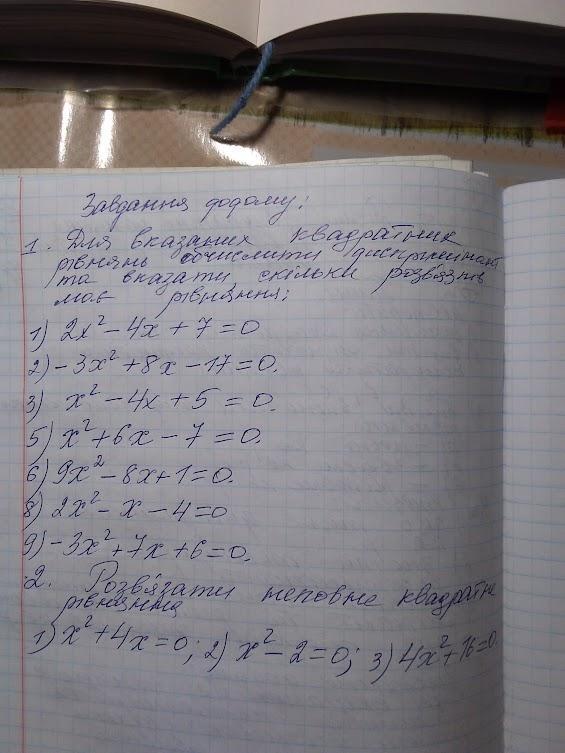 Завдання додому:
1. Для вказаних квадратних
рівнянь обчислити дискримінант
та вказати, скільки розв'язків
має рівняння:
1) 2x² - 4x + 7 = 0
2) -3x² + 8x - 17 = 0.
3) x² - 4x + 5 = 0.
5) x² + 6x - 7 = 0.
6) 9x² - 8x + 1 = 0.
8) 2x² - x - 4 = 0
9) -3x² + 7x + 6 = 0.
2. Розв'язати неповне квадратне
рівняння
1) x² + 4x = 0; 2) x² - 2 = 0; 3) 4x² + 16 = 0